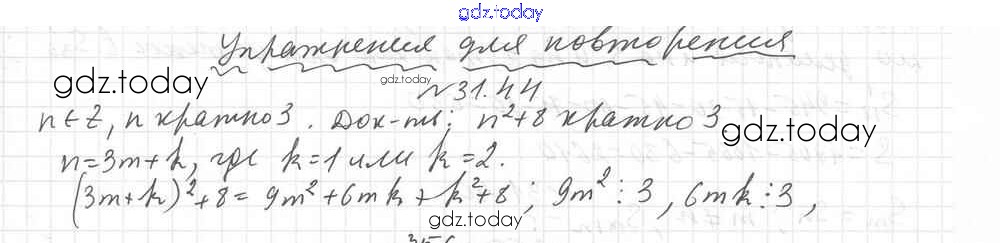 gdz.today
Упражнения для повторения
gdz.today
gdz.today
№31.44
n∈Z, n кратно 3. Док-ть: n²+8 кратно 3
gdz.today
n=3m+k, где k=1 или k=2.
(3m+k)²+8 = 9m²+6mk+k²+8; 9m²⋮3, 6mk⋮3,
gdz.today